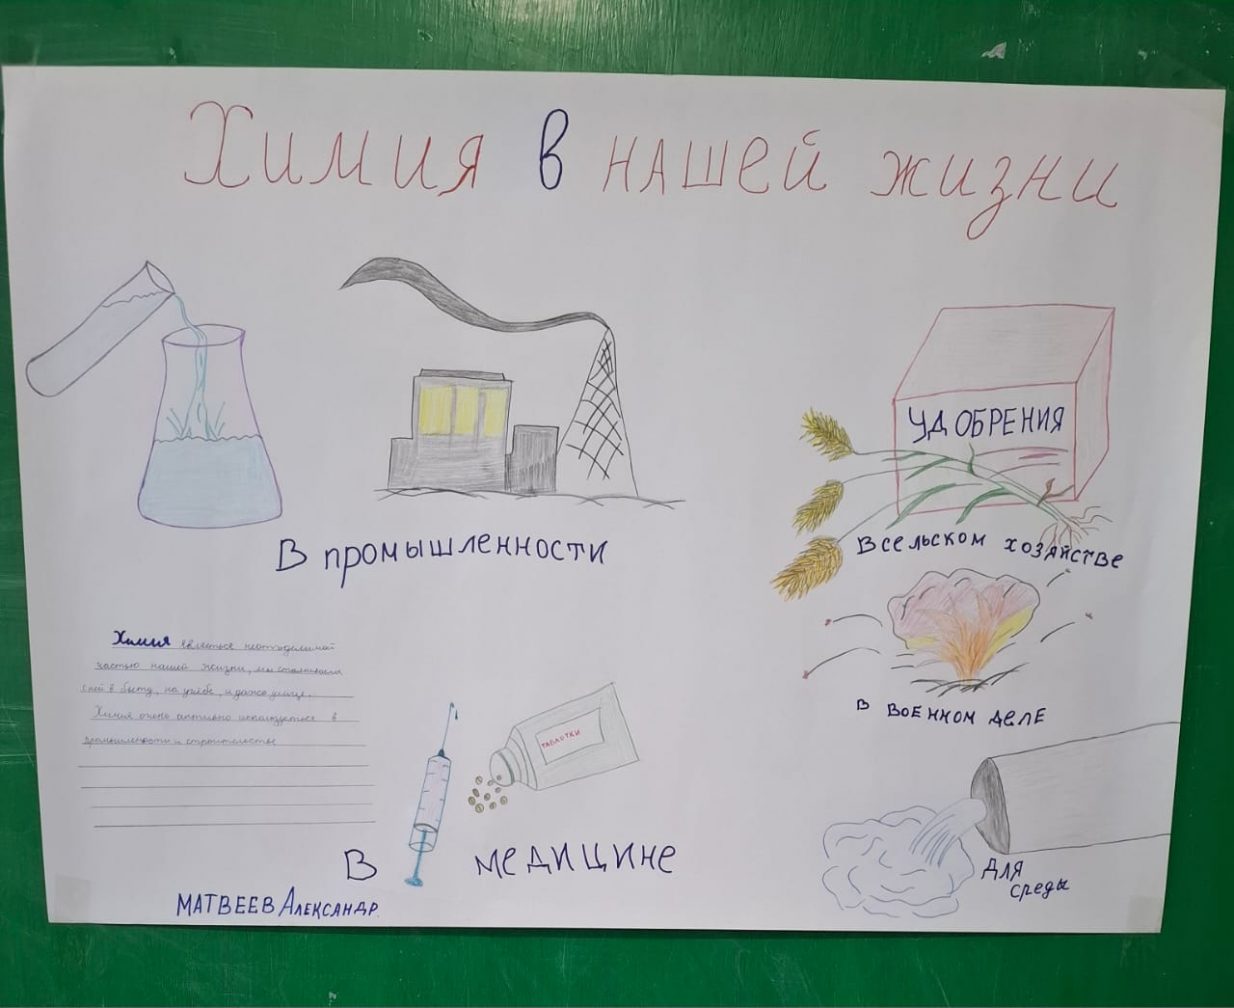 Химия в нашей жизни
УДОБРЕНИЯ
В промышленности
В сельском хозяйстве
Химия является неотъделимой
частью нашей жизни, мы сталкиваем
с ней в быту, на учёбе, и даже улице.
Химия очень активно используется в
промышлености и строительстве
В военном деле
ТАБЛЕТКИ
В медицине
Для
среды
МАТВЕЕВ Александр